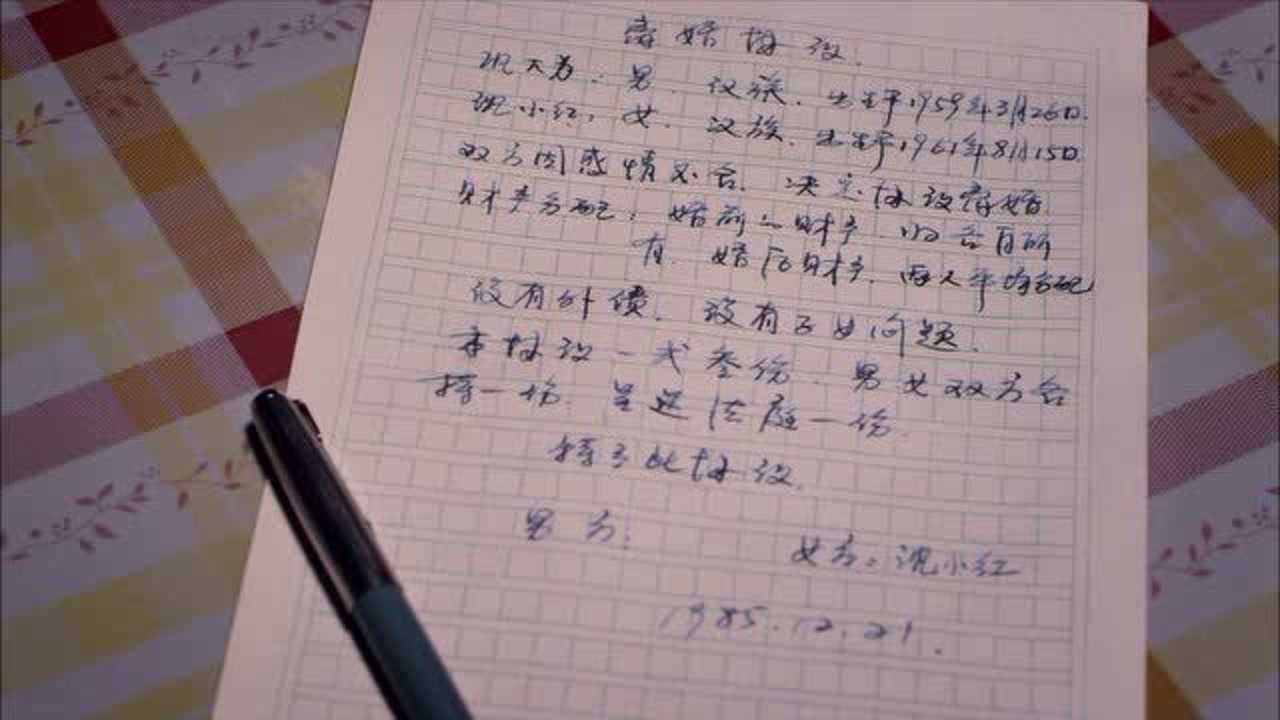 离婚协议.
巩大为: 男. 汉族. 出生于1959年3月26日.
沈小红: 女. 汉族. 出生于1961年8月15日.
双方因感情不合. 决定协议离婚.
财产分配: 婚前之财产. 归各自所
有. 婚后财产. 两人平均分配
没有外债. 没有子女问题.
本协议一式叁份. 男女双方各
持一份. 呈送法庭一份.
特立此协议.
男方:
女方: 沈小红
1985.12.21.